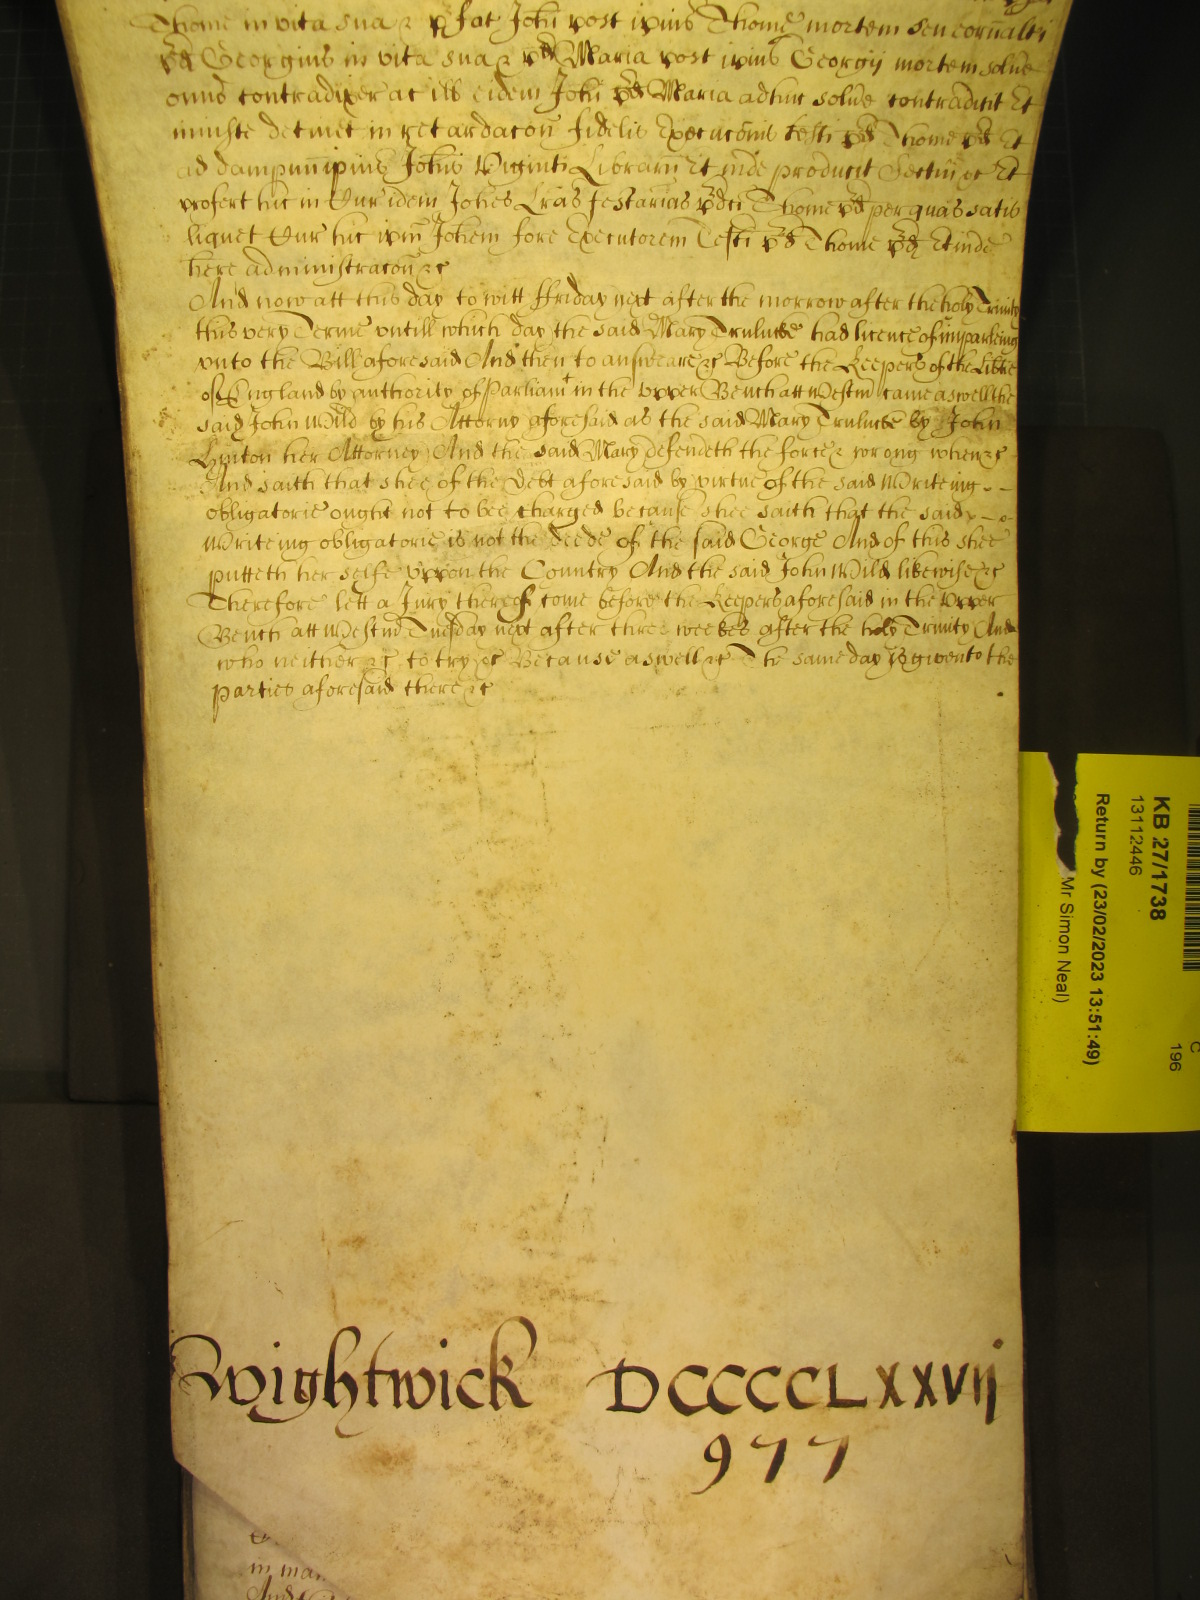 Thome in vita sua & p̃fat Joħi post ip̃ius Thome mortem seu eor̃ alt̃i
p̃d Georgius in vita sua & p̃d Maria post ip̃ius Georgij mortem solũe
om̃o contradixer ac ill̃ eidem Joħi p̃d Maria adhuc solũe contradicit Et
iniuste detinet in retardac̃oñ fidelis Executc̃onis testi p̃d Thome p̃d Et
ad dampnũ ip̃ius Joħis Viginti Librar̃ Et inde producit Sectam̃ &c Et
profert hic in Cur̃ idem Joħes Lr̃as testarias p̃dc̃i Thome p̃d per quas satis
liquet Cur̃ hic ip̃m Joħem fore Executorem Testi p̃d Thome p̃d Et inde
here administrac̃oñ &c
And now att this day to witt ffriday next after the morrow after the holy Trinity
this very Terme untill which day the said Mary had licence of imparleing
vnto the Bill aforesaid And then to answeare &c Before the Keepers of the Lib̃tie
of England by authority of Parliam̃t in the vpper Bench att Westm̃ came aswell the
said John Wild by his Attorny aforesaid as the said Mary by John
Hinton her Attorney And the said Mary defendeth the force & wrong when &c
And saith that shee of the debt aforesaid by virtue of the said Writeing - -
obligatorie ought not to bee charged because shee saith that the said
Writeing obligatorie is not the deede of the said George And of this shee
putteth her selfe vppon the Country And the said John Wild likewise &c
Therefore lett a Jury thereof come before the Keepers aforesaid in the vpper
Bench att Westm̃ Tuesday next after three weekes after the holy Trinity And
who neither &c to try &c Because aswell &c The same day is given to the
parties aforesaid there &c
Wightwick DCCCCLXXVIJ
977
in man
And
KB 27/1738
13112446
Return by (23/02/2023 13:51:49)
Mr Simon Neal)
C
196